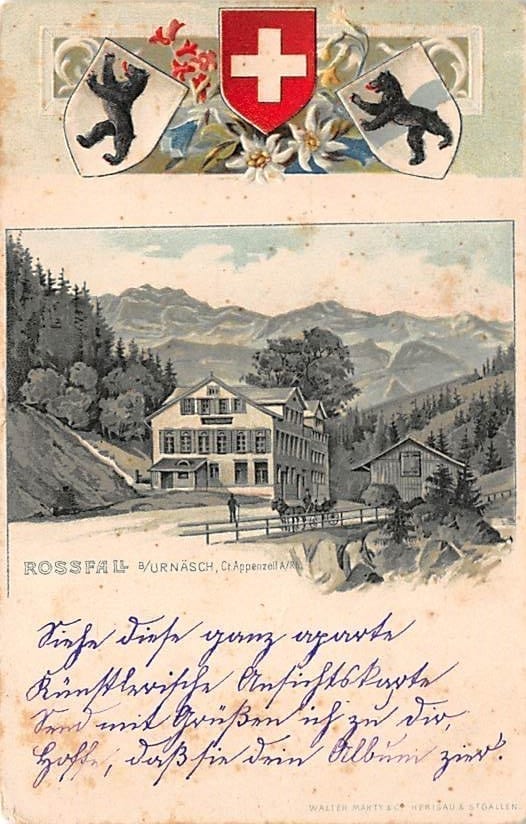 ROSSFALL B/URNÄSCH, Ct. Appenzell A/Rh.
Siehe diese ganz aparte
Künstlerische Ansichtskarte
Send mit Grüßen ich zu dir,
Hoffe, daß sie dein Album zier'.
WALTER MARTY & Co. HERISAU & St GALLEN.